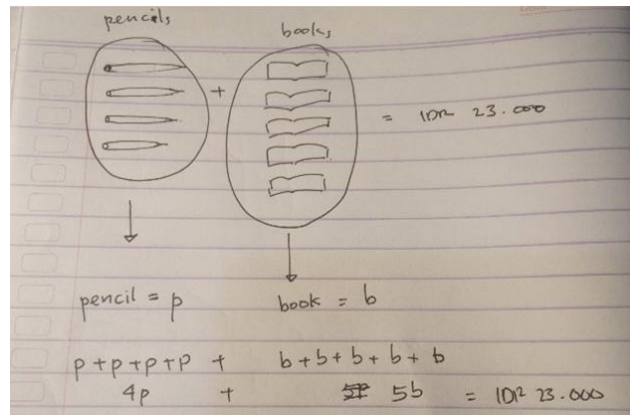 pencils
books
+
= IDR 23.000
pencil = p
book = b
p+p+p+p + b+b+b+b+b
4p + 5b = IDR 23.000